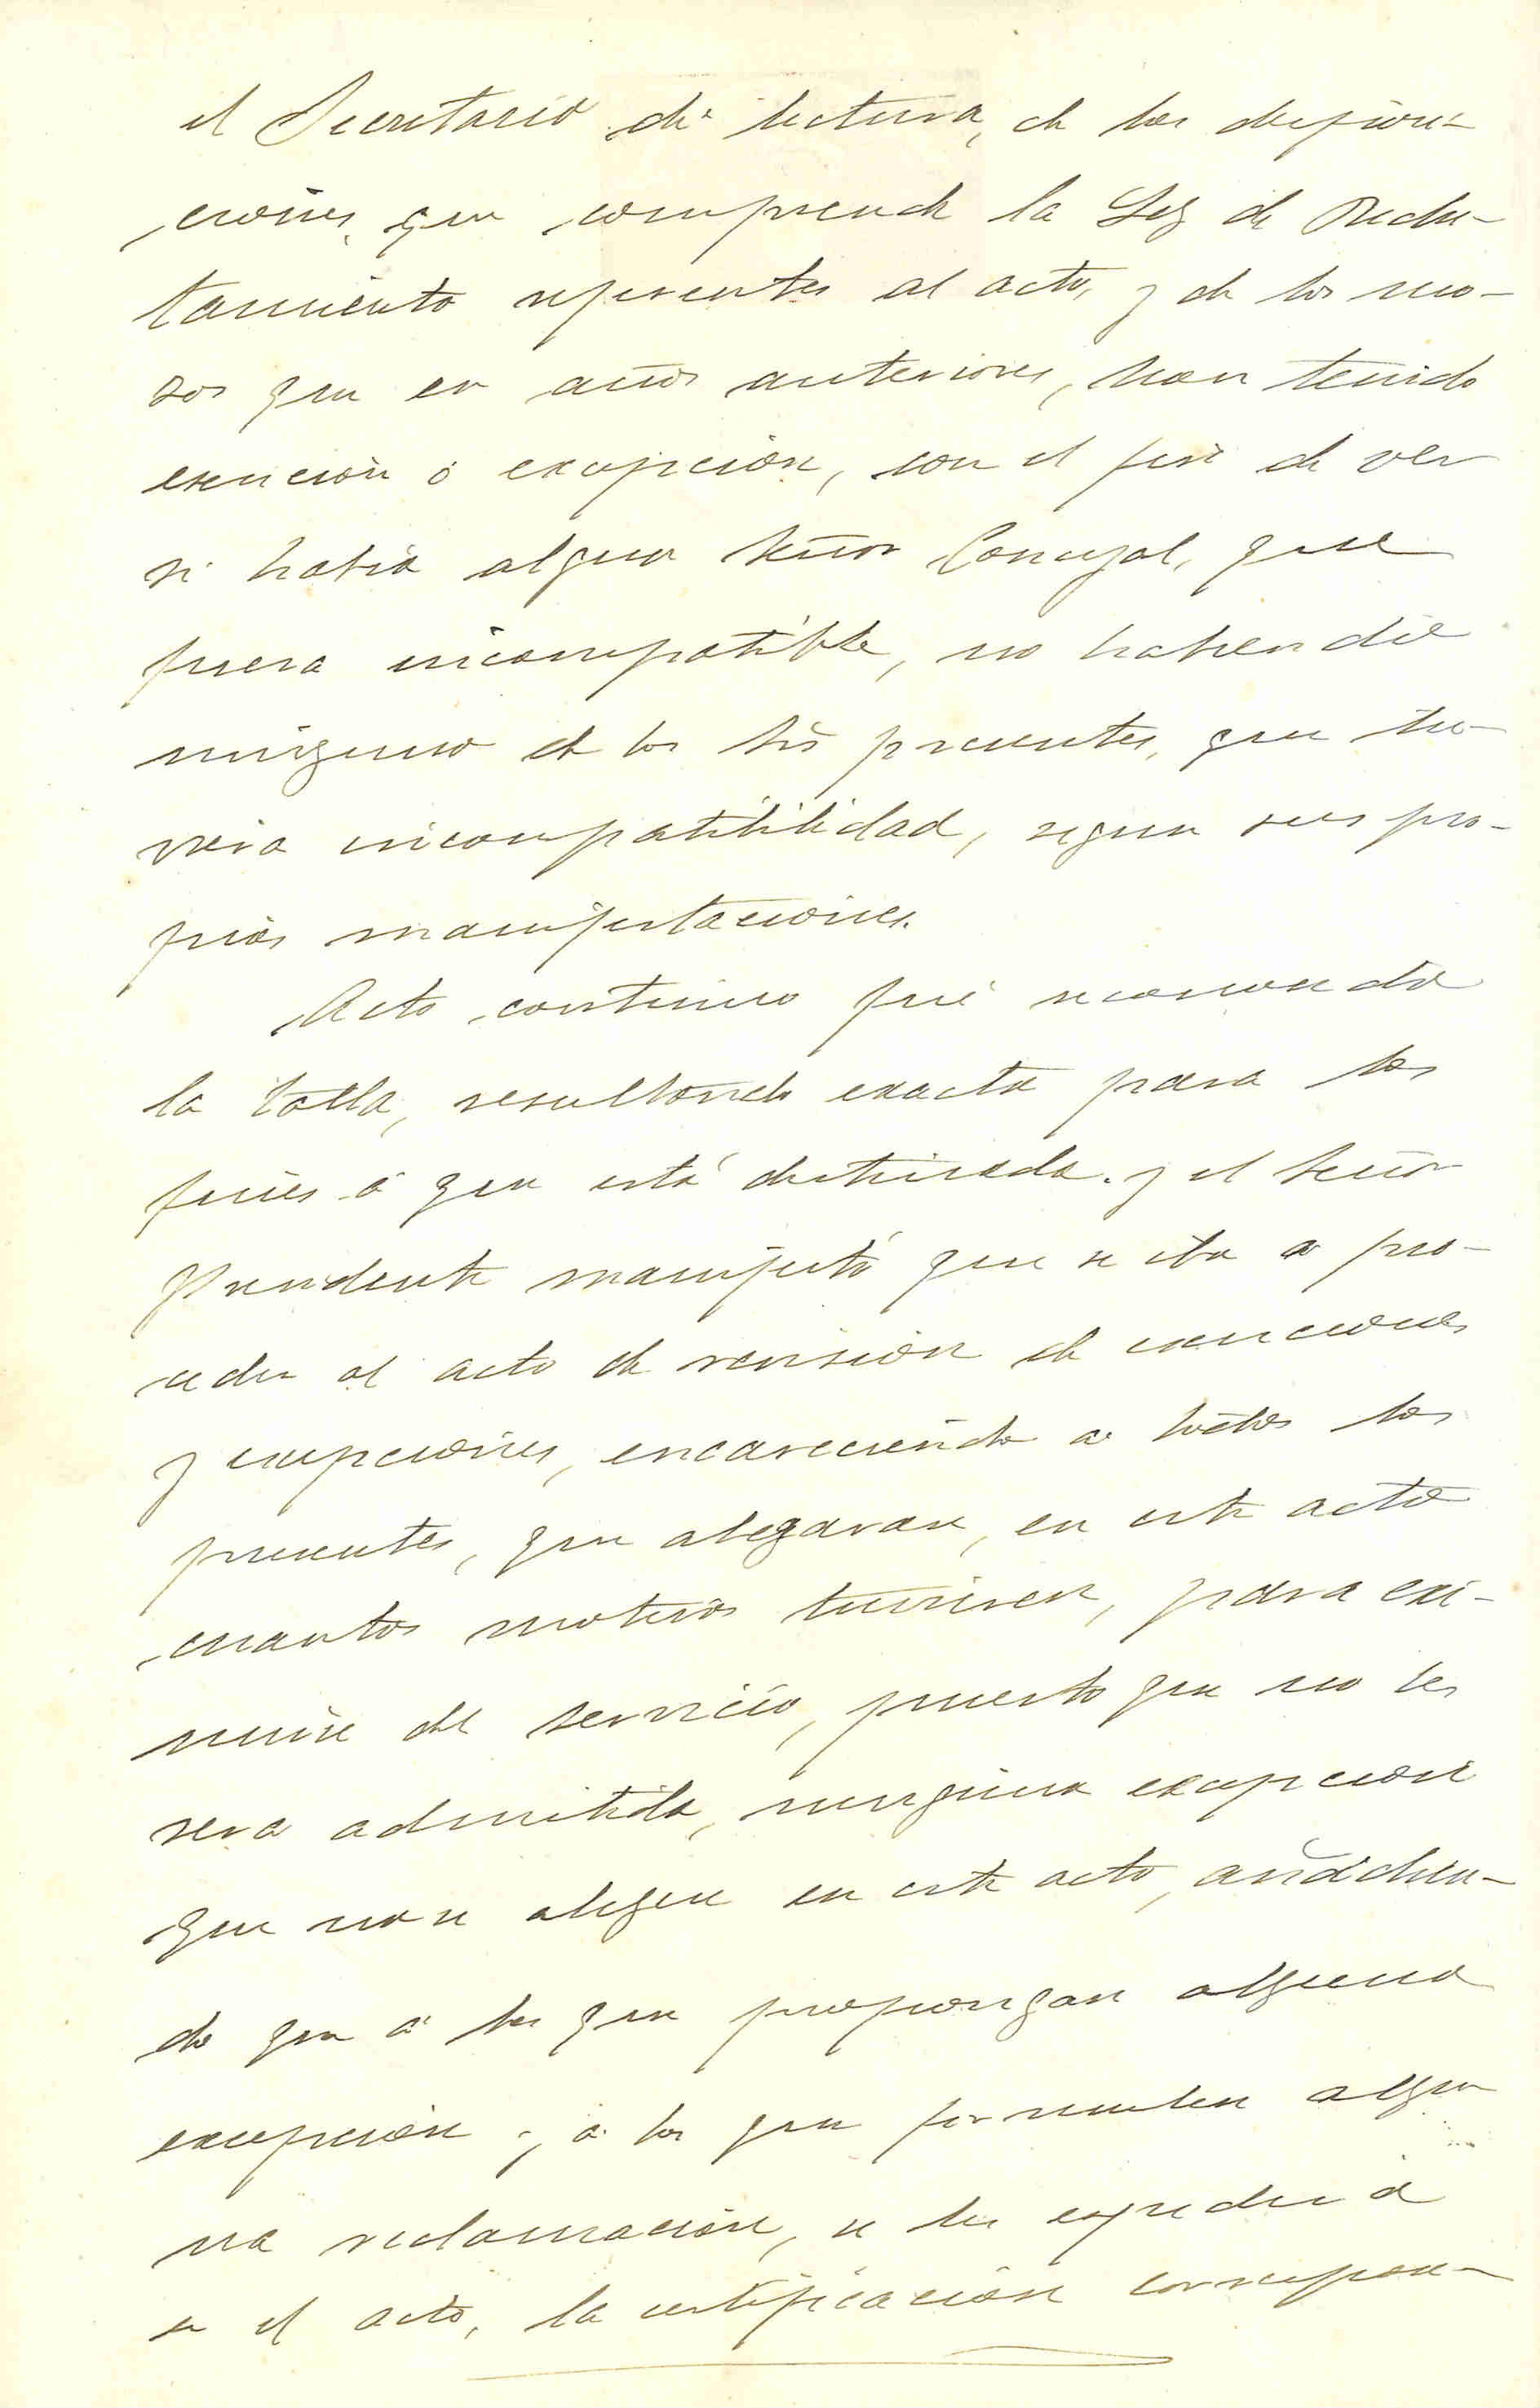 el Secretario dió lectura, de las disposi-
ciones, que comprende la Ley de Reclu-
tamiento referentes al acto, y de los mo-
zos que en años anteriores, han tenido
exención ó excepción, con el fin de ver
si habia algun Señor Concejal, que
fuera incompatible, no habiendo
ninguno de los Srs presentes, que tu-
viera incompatibilidad, segun sus pro-
pias manifestaciones.
Acto continuo fué reconocida
la talla, resultando exacta para los
fines á que está destinada. y el Señor
Presidente manifestó que se iba a pro-
ceder al acto de revisión de exenciones
y excepciones, encareciendo a todos los
presentes, que alegaran, en este acto
cuantos motivos tuvieren, para exi-
mirse del servicio, puesto que no les
sera admitida, ninguna excepcion
que no se alegue en este acto, añadien-
do que á los que propongan alguna
excepción y á los que formulen algu-
na reclamación, se les expedirá
en el acto, la certificación correspon-